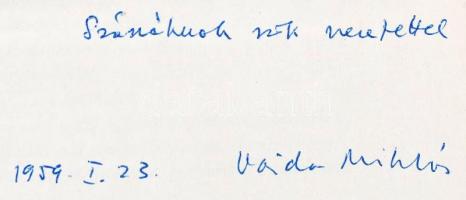 Szásáknak sok szeretettel
1959. I. 23. Vajda Miklós